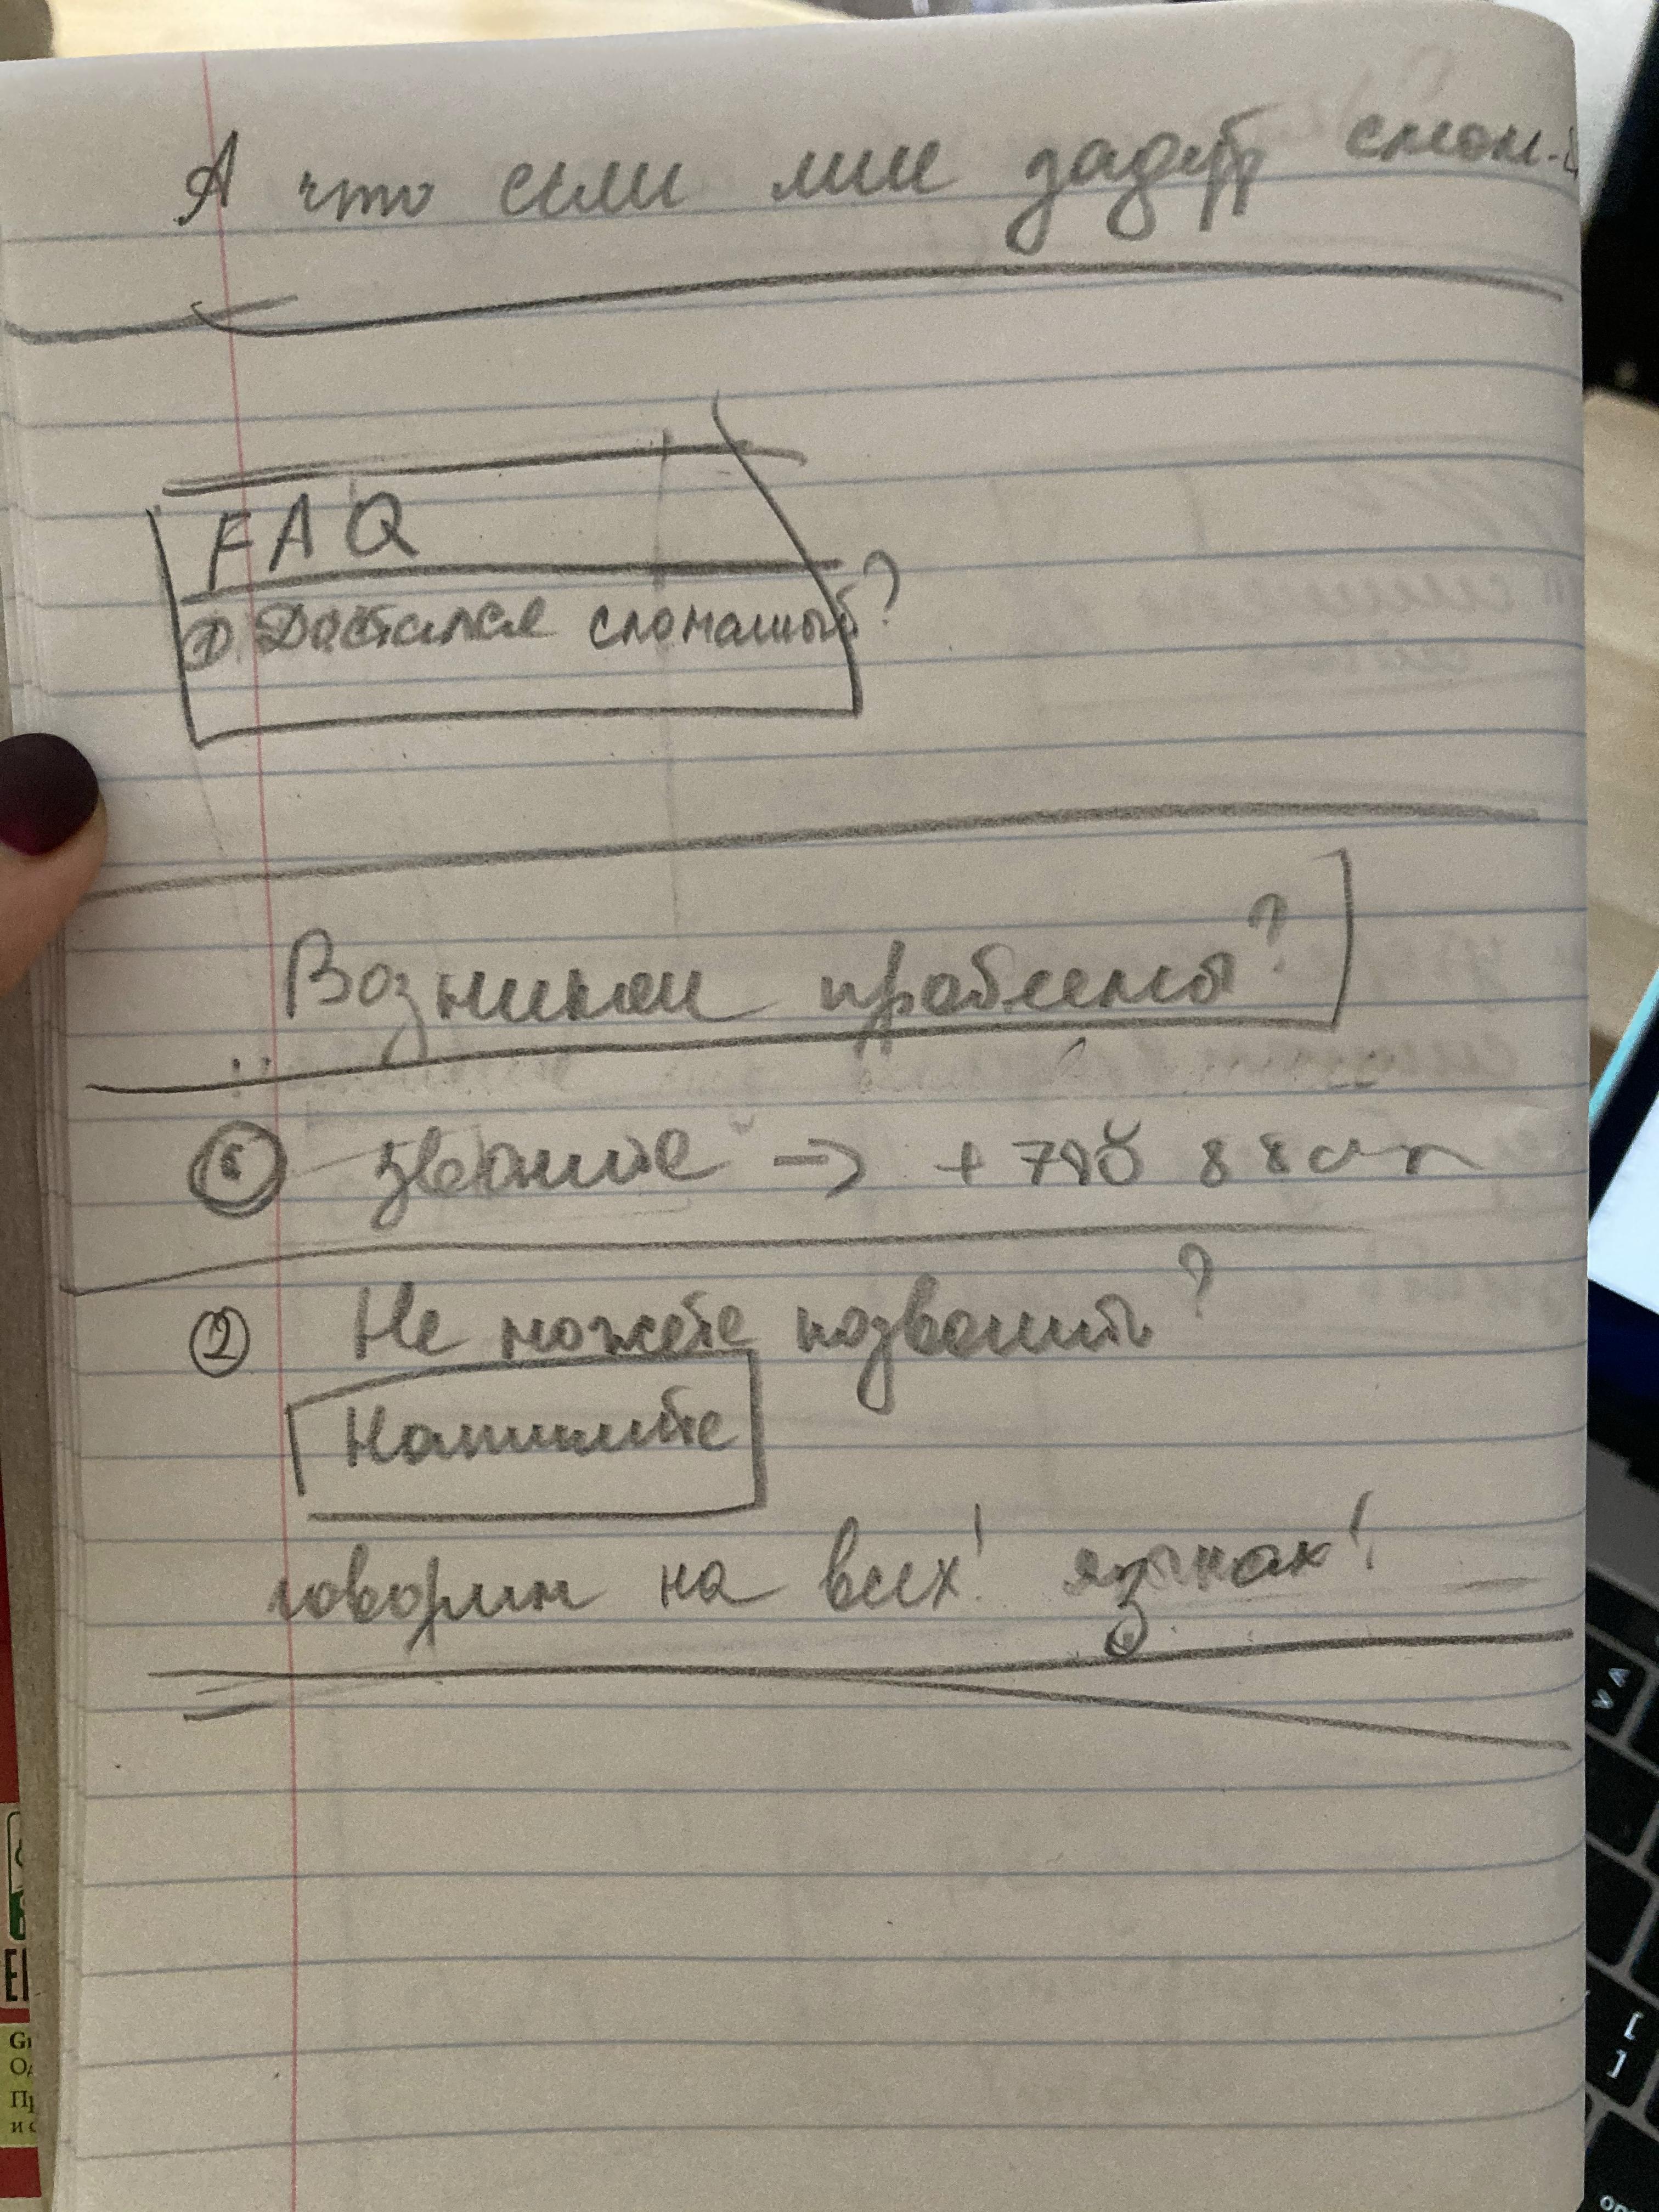 А что если мне зададут слом-й
FAQ
① Достался сломанный?
Возникли проблемы?
звоните → +7
② Не можете позвонить?
Напишите
говорим на всех! языках!